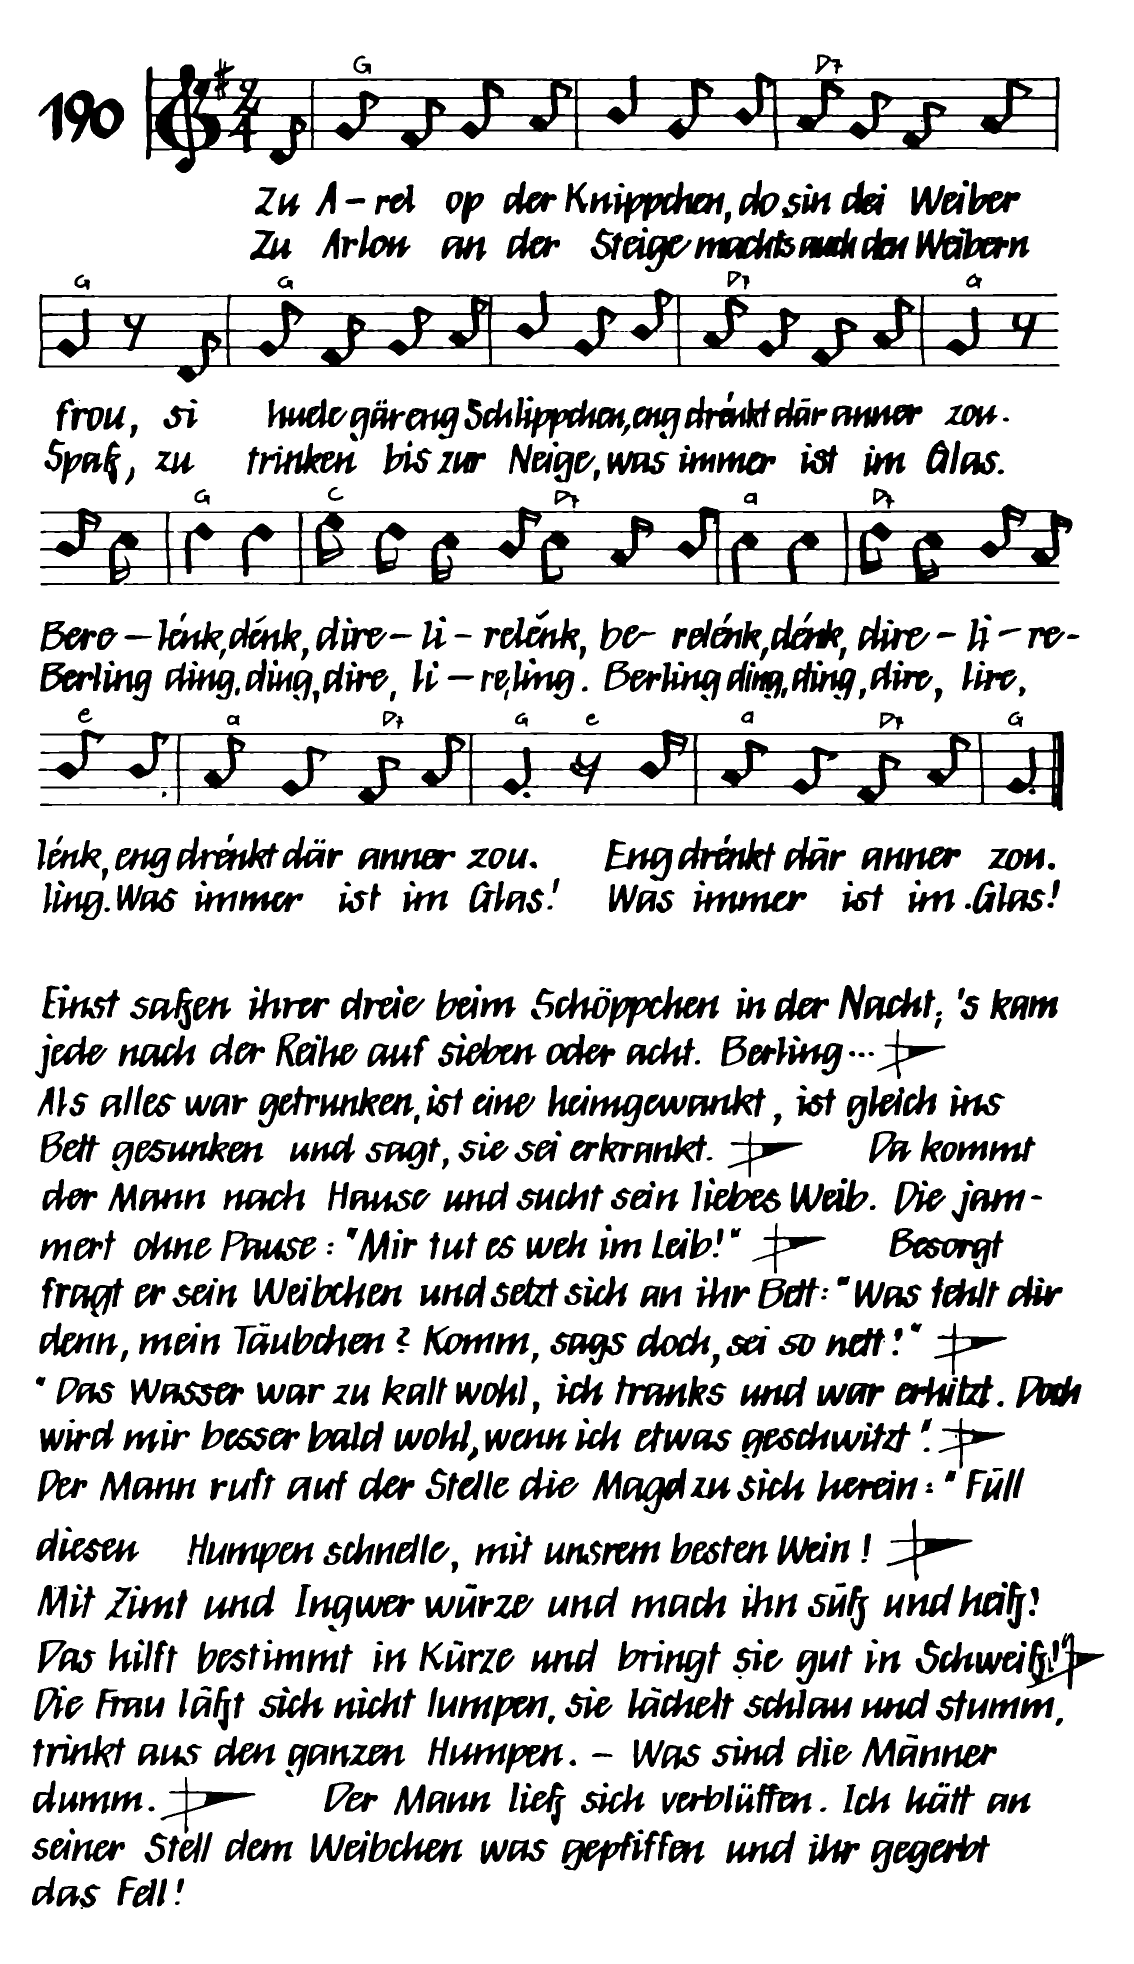 190
G D7
Zu A-rel op der Knippchen, do sin dei Weiber
Zu Arlon an der Steige machts auch den Weibern
G G D7 G
frou, si huele gären Schlippchen, eng drénkt där anner zou.
Spaß, zu trinken bis zur Neige, was immer ist im Glas.
G C D7 a D7
Bere-lénk, dénk, dire-li-relénk, be- relénk, dénk, dire-li-re-
Berling ding, ding, dire, li-re, ling. Berling ding, ding, dire, lire,
e a D7 G e a D7 G
lénk, eng drénkt där anner zou. Eng drénkt där anner zou.
ling. Was immer ist im Glas! Was immer ist im Glas!
Einst saßen ihrer dreie beim Schöppchen in der Nacht; 's kam
jede nach der Reihe auf sieben oder acht. Berling...
Als alles war getrunken, ist eine heimgewankt, ist gleich ins
Bett gesunken und sagt, sie sei erkrankt. Da kommt
der Mann nach Hause und sucht sein liebes Weib. Die jam-
mert ohne Pause: "Mir tut es weh im Leib!" Besorgt
fragt er sein Weibchen und setzt sich an ihr Bett: "Was fehlt dir
denn, mein Täubchen? Komm, sags doch, sei so nett!"
"Das Wasser war zu kalt wohl, ich tranks und war erhitzt. Doch
wird mir besser bald wohl, wenn ich etwas geschwitzt".
Der Mann ruft auf der Stelle die Magd zu sich herein: "Füll
diesen Humpen schnelle, mit unsrem besten Wein!
Mit Zimt und Ingwer würze und mach ihn süß und heiß!
Das hilft bestimmt in Kürze und bringt sie gut in Schweiß!"
Die Frau läßt sich nicht lumpen, sie lächelt schlau und stumm,
trinkt aus den ganzen Humpen. - Was sind die Männer
dumm. Der Mann ließ sich verblüffen. Ich hätt an
seiner Stell dem Weibchen was gepfiffen und ihr gegerbt
das Fell!